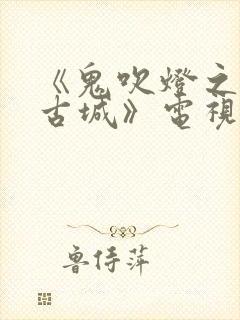 《鬼吹燈之
古城》電視
魯侍萍